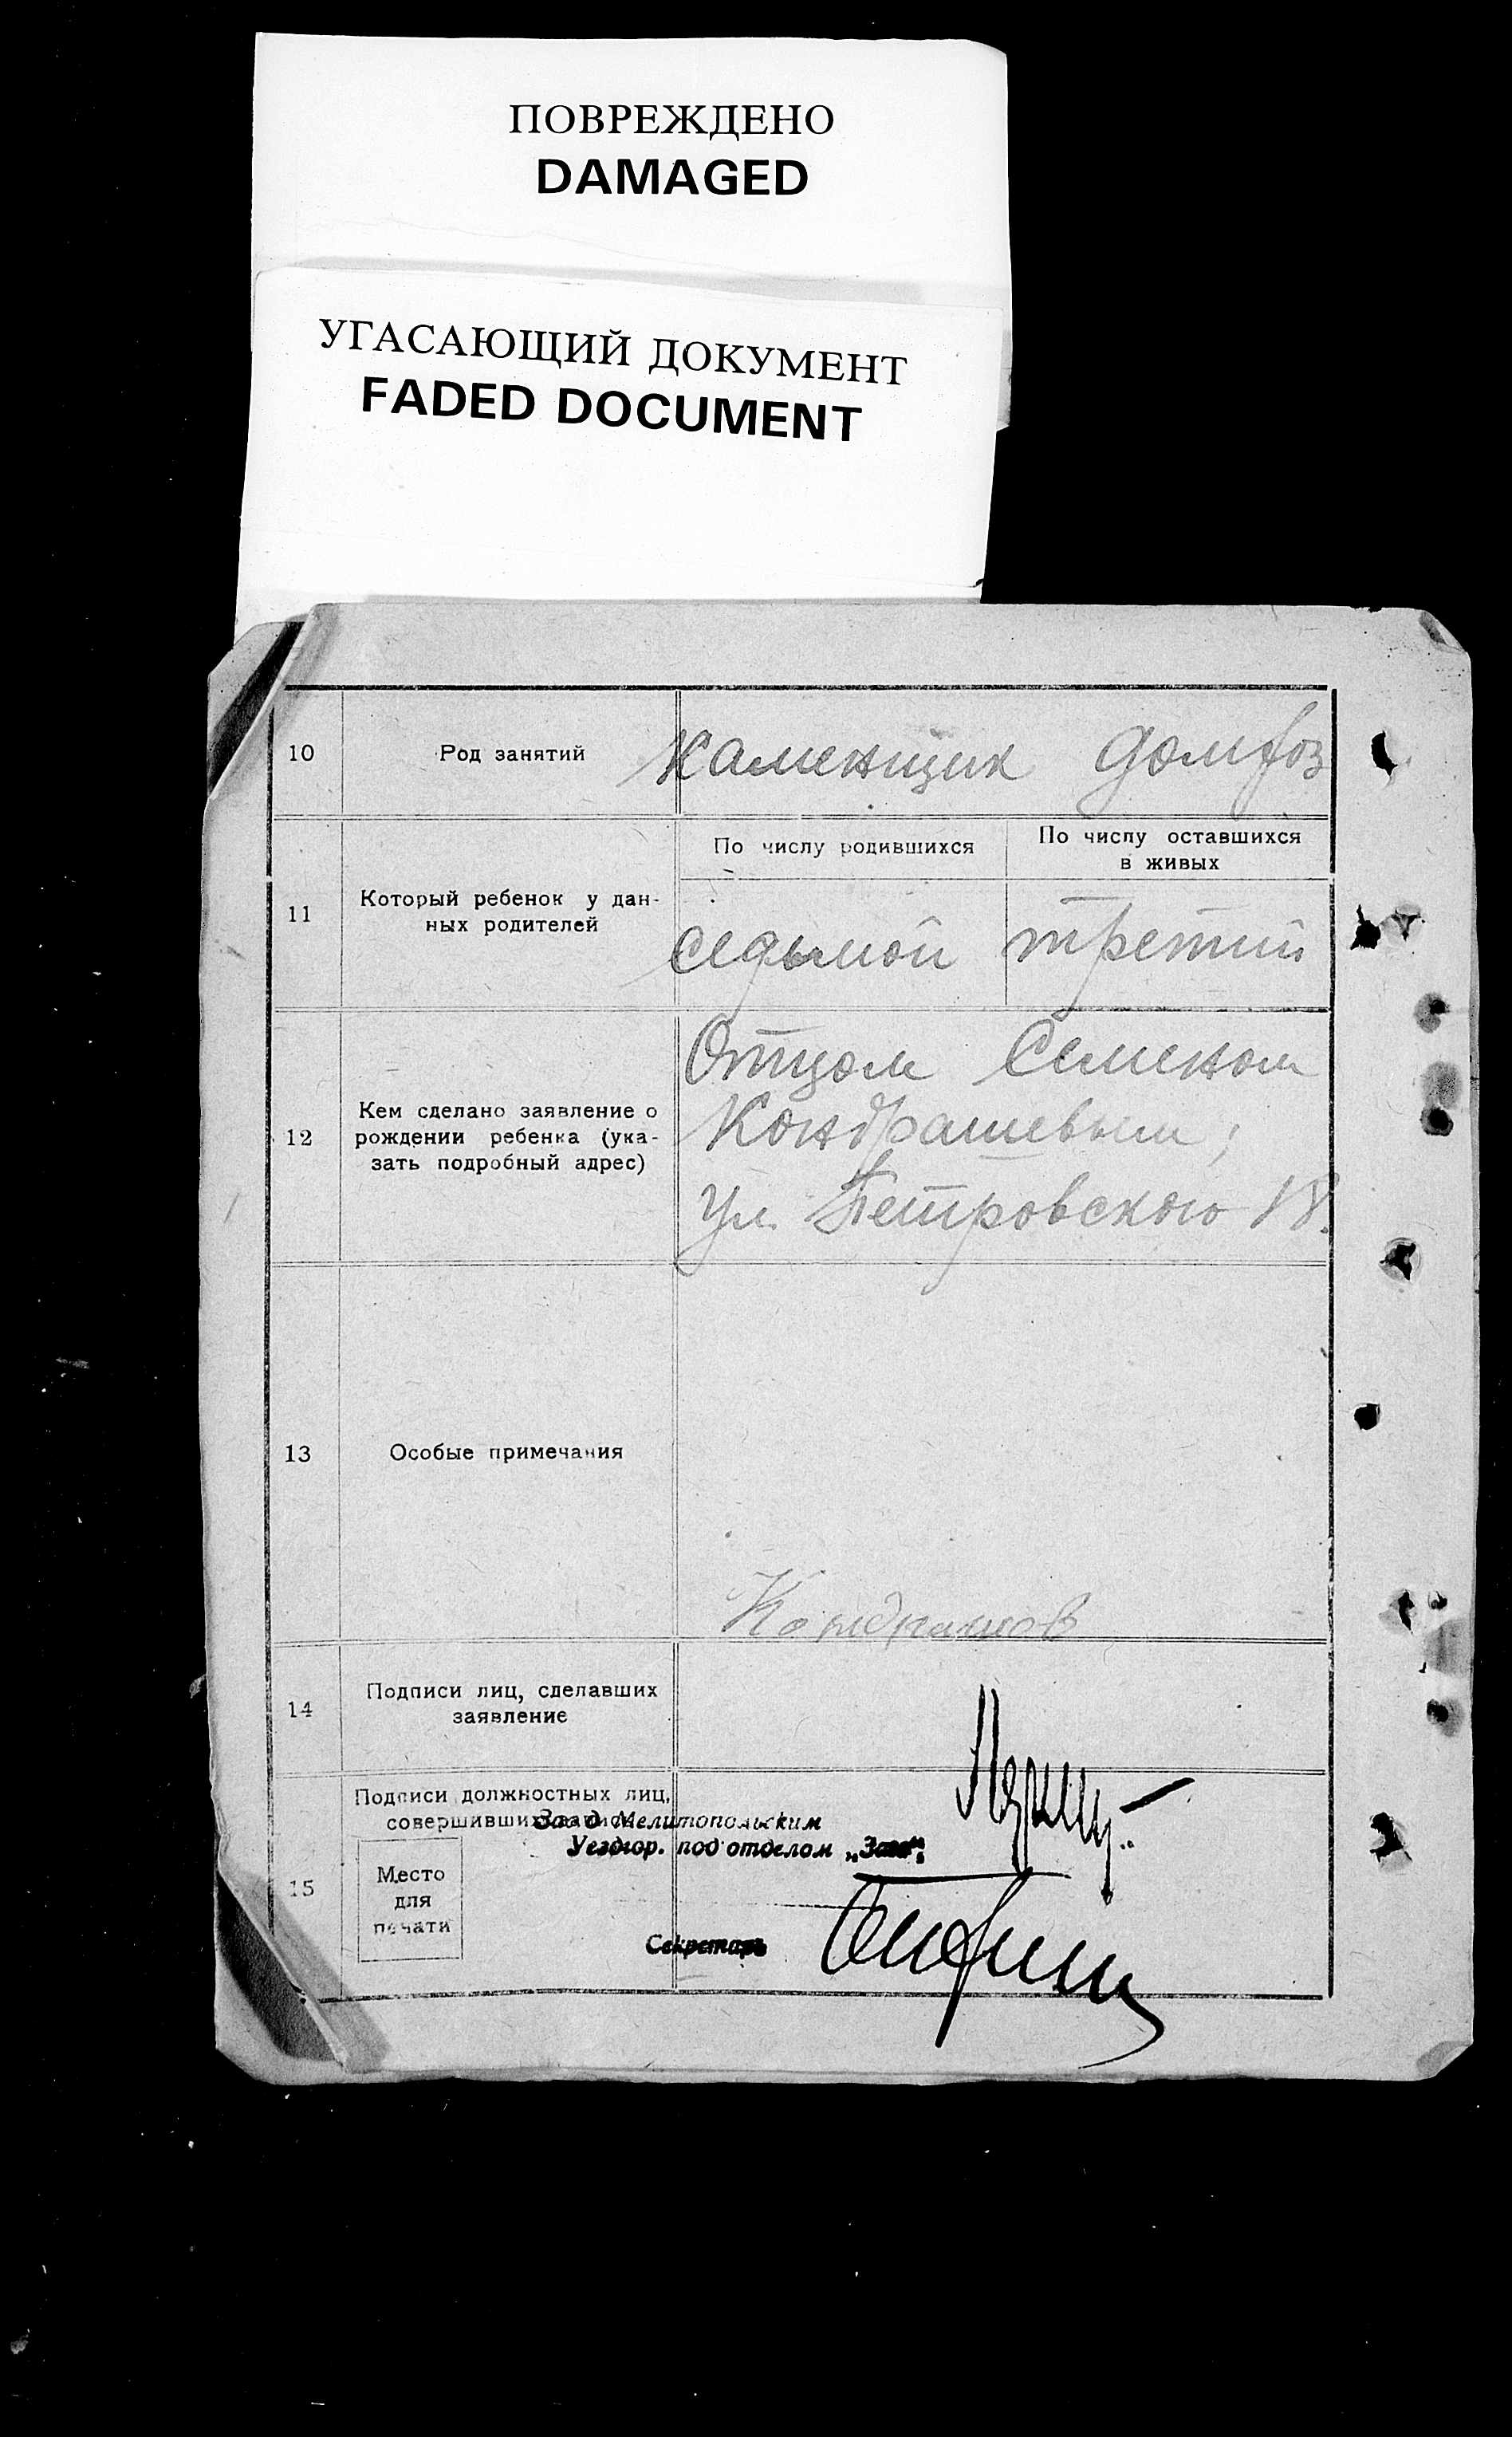 ПОВРЕЖДЕНО
DAMAGED
УГАСАЮЩИЙ ДОКУМЕНТ
FADED DOCUMENT
10
Род занятий
Каменщик домхоз
11
Который ребенок у дан-
ных родителей
По числу родившихся
По числу оставшихся
в живых
седьмой
третий
12
Кем сделано заявление о
рождении ребенка (ука-
зать подробный адрес)
Отцом Семеном
Кондрашевым;
ул. Петровского 18.
13
Особые примечания
Кондрашов
14
Подписи лиц, сделавших
заявление
15
Подписи должностных лиц,
совершивших
Зав Мелитопольским
Уездгор. под отделом „Загс“.
Место
для
печати
Секретарь